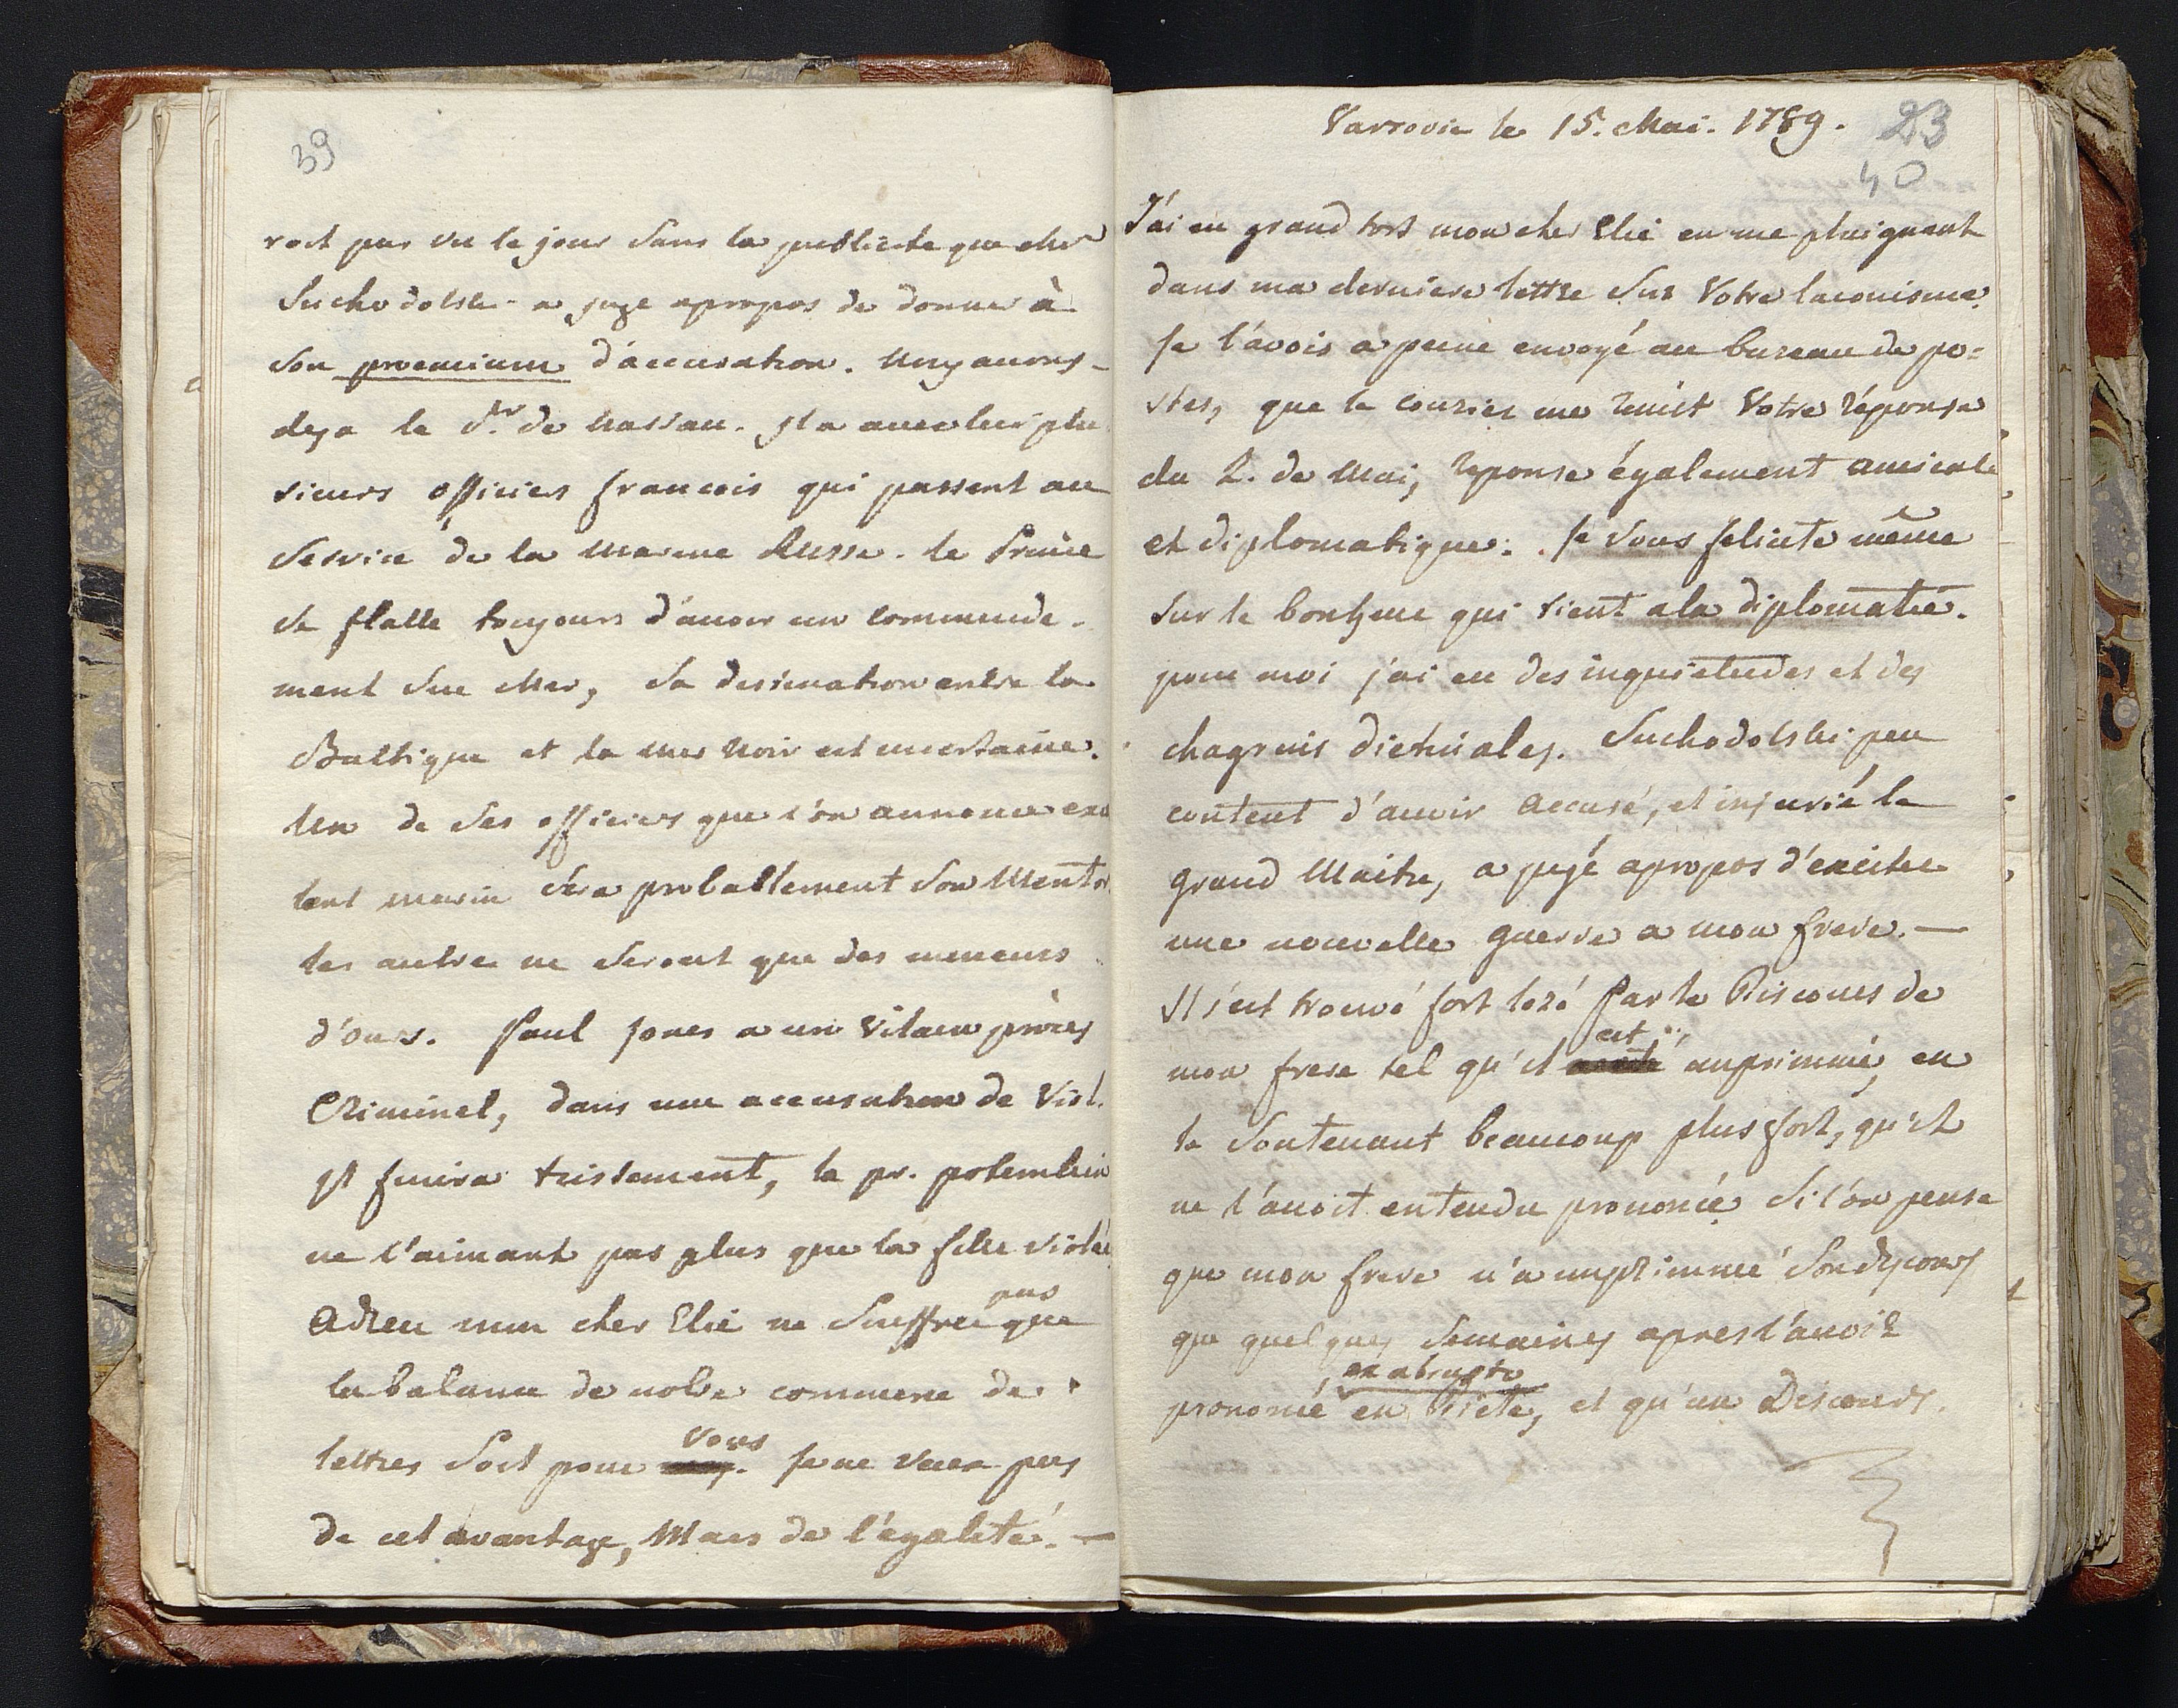 39
roit pas vu le jour sans la publicite que cher
Suchodolski a juge apropos de donner à
son proemium d'accusation. Nous avons
deja le Pr. de Nassau. Il a avec lui plu
sieurs officiers francois qui passent au
service de la Marine Russe. le Prince
se flatte toujours d'avoir un commende-
ment sur Mer, sa destination entre la
Baltique et la mer Noir est incertaine.
Un de ses officiers que l'on annonce exc
lent marin sera probablement son Mentor
les autres ne seront que des meneurs
d'ours. Paul Jones a un vilain procès
Criminel, dans une accusation de Viol.
Il finira tristement, le pr. potemkin
ne l'aimant pas plus que la fille violée
Adieu mon cher Elie ne souffrez pas que
la balance de notre commerce de
lettres soit pour vous. Je ne veux pas
de cet avantage, Mais de l'égalité. —
Varsovie le 15. Mai. 1789.
23
40
J'ai eu grand tort mon cher Elie en me plaignant
dans ma derniere lettre sur Votre laconisme.
Je l'avois à peine envoyé au bureau de po=
stes, que le courier me remit Votre réponse
du 2. de Mai, reponse également amicale
et diplomatique. Je vous felicite même
sur le bonheur qui tient a la diplomatie.
pour moi j'ai eu des inquietudes et des
chagrins dietinales. Suchodolski peu
content d'avoir accusé, et injurié le
grand Maitre, a jugé apropos d'exciter
une nouvelle guerre a mon frere. —
Il s'est trouvé fort lezé par le Discours de
mon frere tel qu'il est imprimmé, en
le soutenant beaucoup plus fort, qu'il
ne l'avoit entendu prononcé. Si l'on pense
que mon frere n'a imprimmé son discours
que quelques semaines apres l'avoir
prononcé ex abrupto en Diete, et qu'un Discours